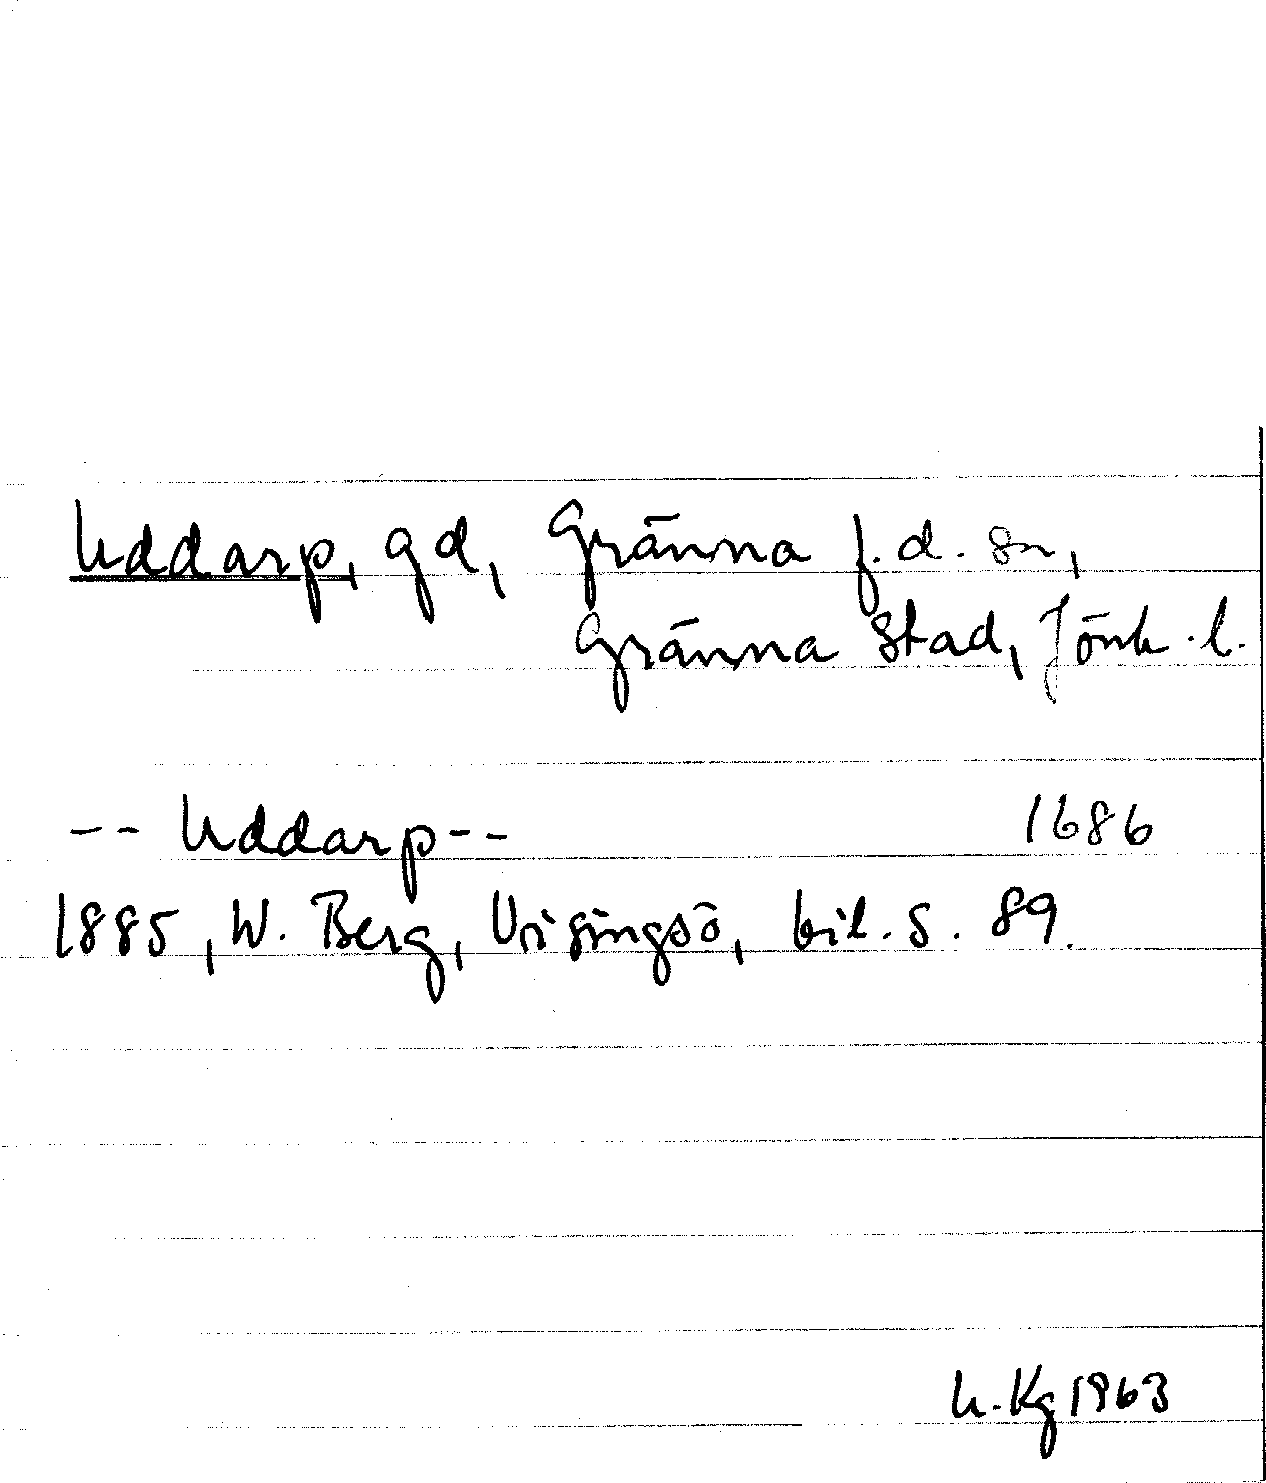 Uddarp, gd, Gränna f.d. sn,
Gränna stad, Jönk. l.
-- Uddarp -- 1686
1885, W. Berg, Visingsö, bil. s. 89.
U. Kg 1963